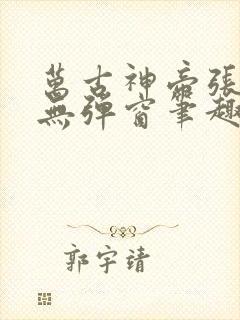 萬古神帝張
無彈窗筆趣
郭宇靖